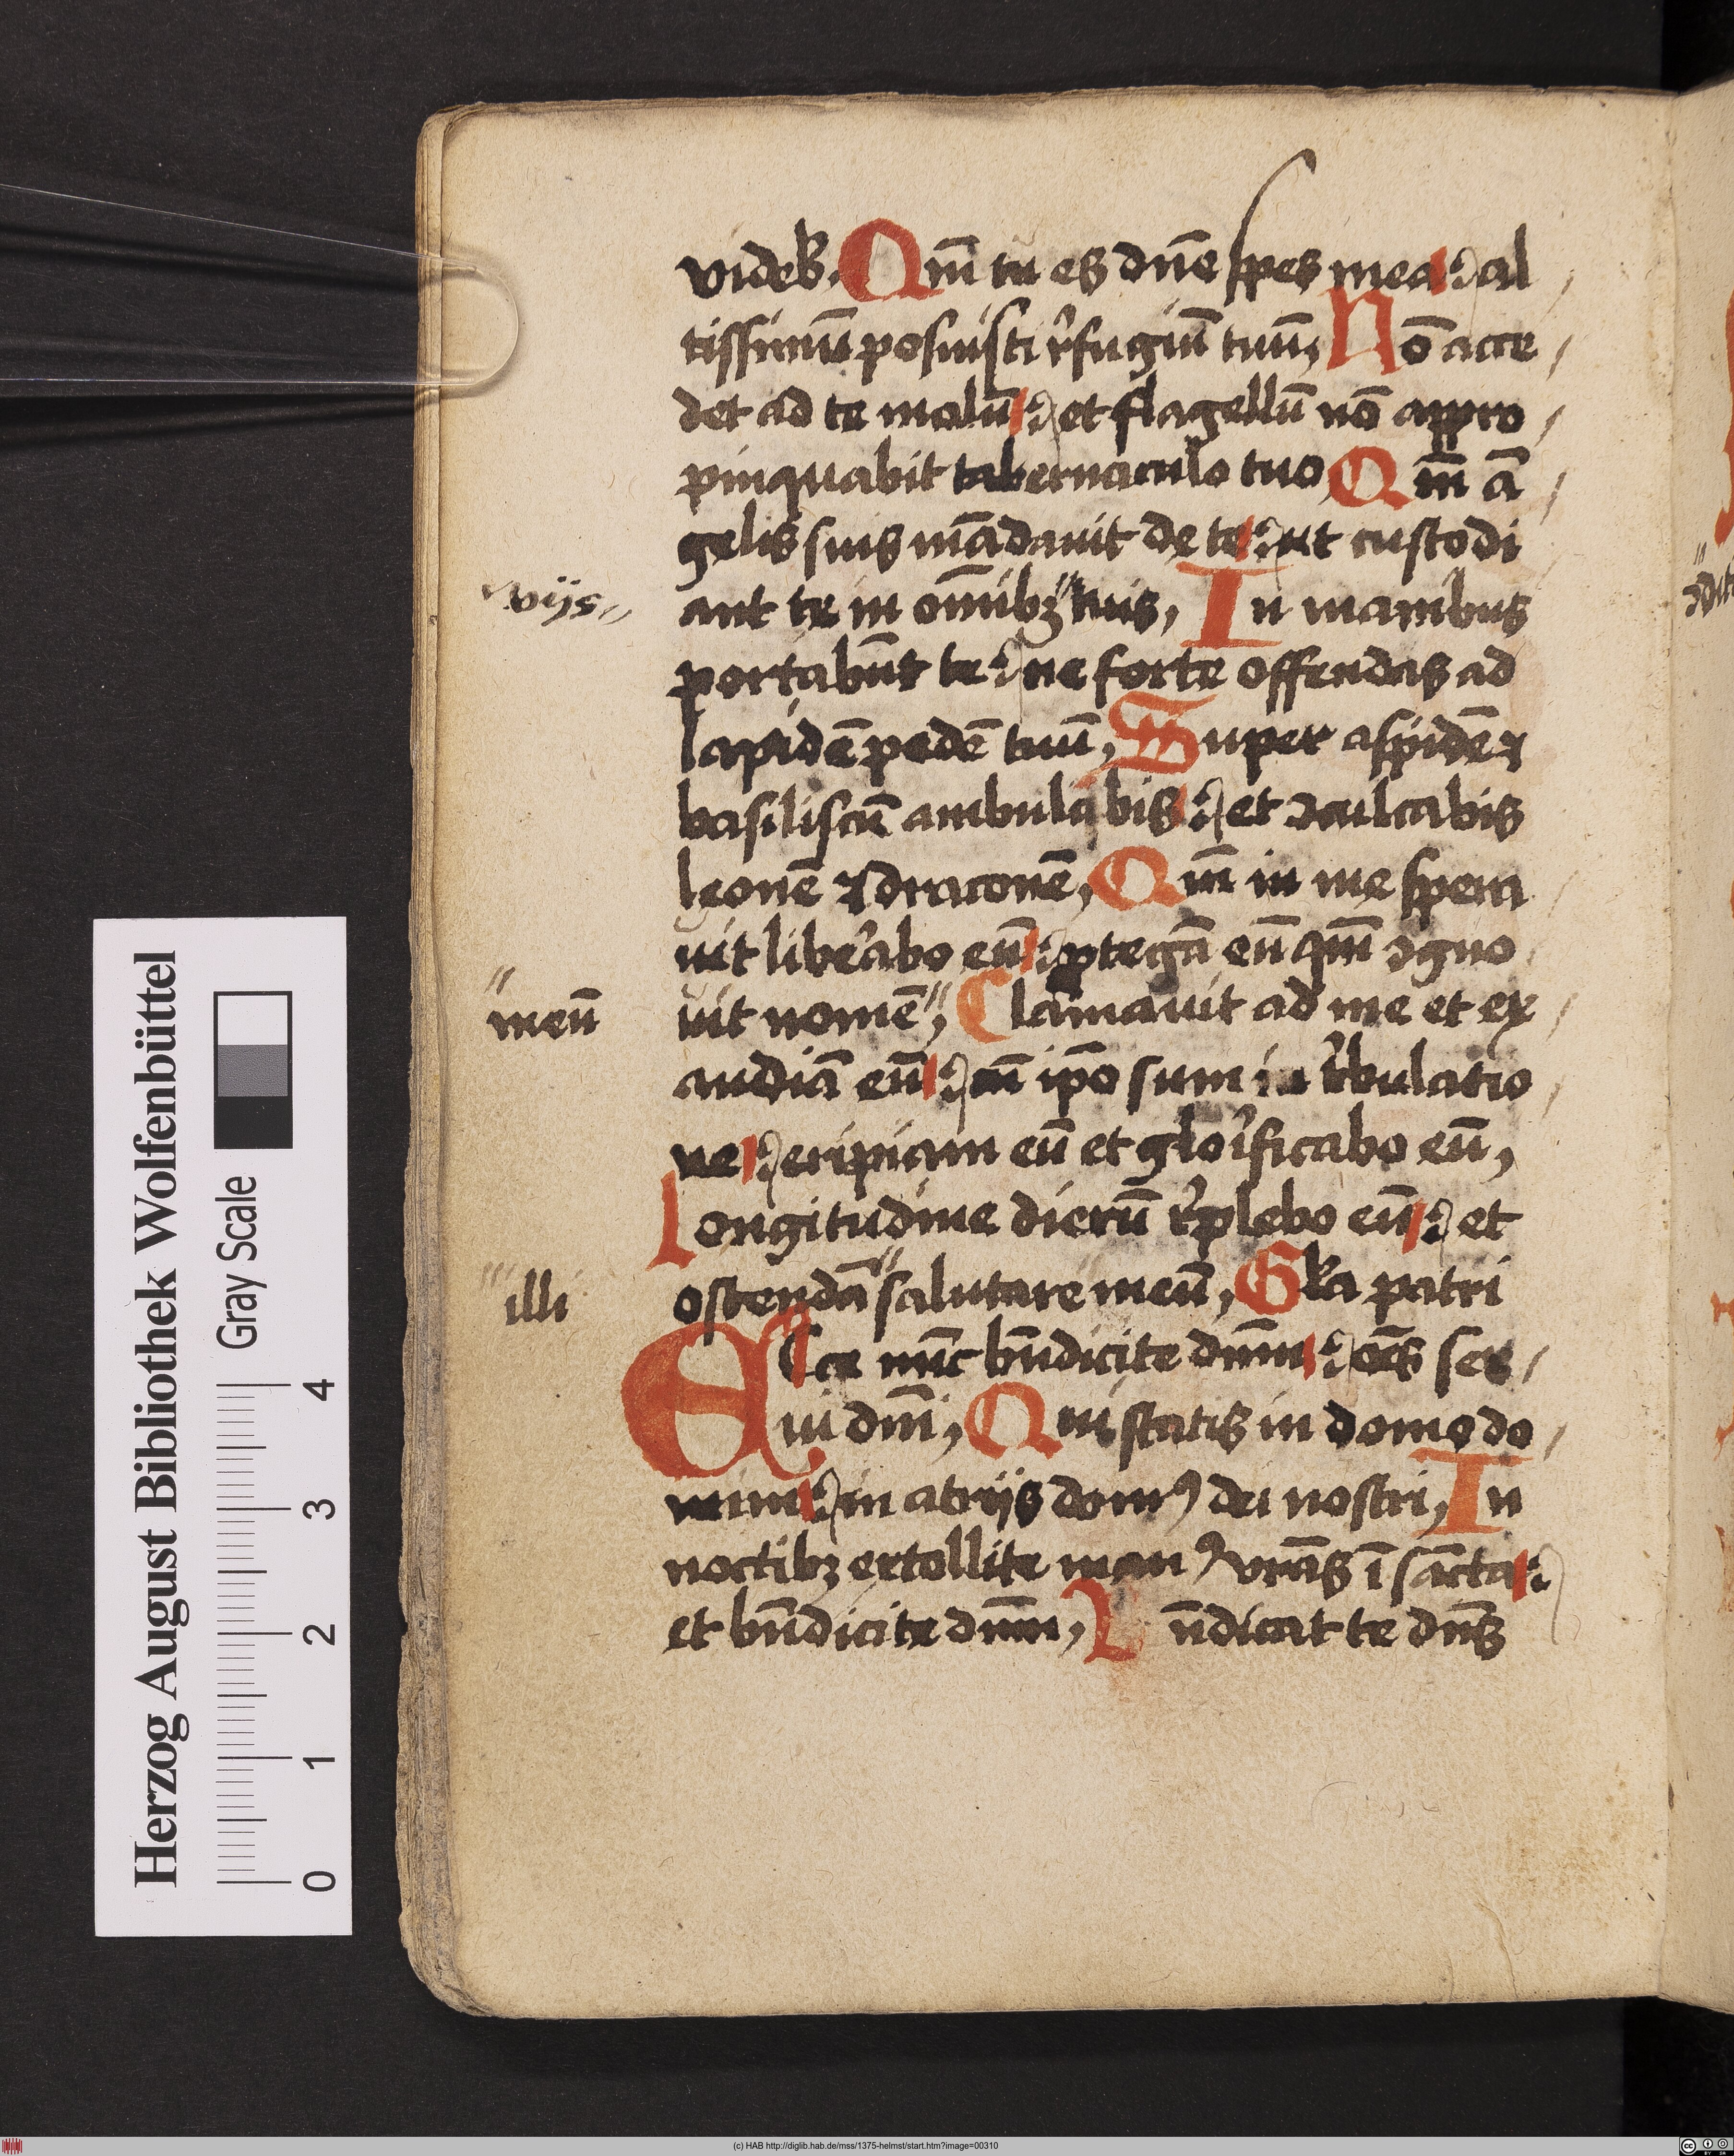 videb. Qm̄ tu es dn̄e spes mea: al
tissimū posuisti r̾fugiū tuū, Nō acce
det ad te malū: et flagellū nō appro
pinquabit tabernaculo tuo, Qm̄ ā
gelis suis mādauit de te: ut custodi
ant te in om̄ibꝫ tuis, In manibus
vijs
portabūt te: ne forte offendas ad
lapidē pedē tuū, Super aspidē ⁊
basiliscū ambulabis: et ↄculcabis
leonē ⁊ draconē, Qm̄ in me spera
uit liber̾abo eū: ꝓtegā eū qm̄ ↄgno
uit nomē, Clamauit ad me et ex
meū
audiā eū: cū ip̄o sum in tr̾bulatio
ne: eripiam eū et glor̾ificabo eū,
Longitudine dierū r̾plebo eū: et
ostendā salutare meū, Gl̄a patri
illi
Ecce nūc bn̄dicite dn̄m: oēs ser
ui dn̄i, Qui statis in domo do
mini: in atrijs domꝰ dei nostri, In
noctibꝫ extollite manꝰ vr̄as ī sācta:
et bn̄dicite dn̄m, Bn̄dicat te dn̄s
Herzog August Bibliothek Wolfenbüttel
Gray Scale
0 1 2 3 4
(c) HAB http://diglib.hab.de/mss/1375-helmst/start.htm?image=00310